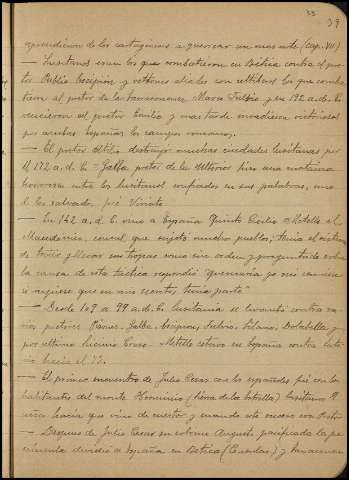 39
aprendieron de los cartagineses a guerrear en mas arte (Cap. VII)
— Lusitanos eran los que combatieron en Bética contra el pretor
Publio Escipión y vettones aliados con celtíberos los que combatieron
al pretor de la tarraconense Marco Fulvio y en 192 a. de C.
vencieron al pretor Emilio y mas tarde invadieron victoriosos
por ambas Españas los campos romanos.
— El pretor Atilio destruyó muchas ciudades lusitanas por
el 172 a. de C. - Galba pretor de la Ulterior hizo una matanza
horrorosa entre los lusitanos confiados en sus palabras, uno
de los salvados fué Viriato
— En 142 a. d. C. vino a España Quinto Cecilio Metello el
Macedonico, consul que sujetó muchos pueblos; tenia el sistema
de traer y llevar sus tropas unas sin orden y preguntado sobre
la causa de esta tactica respondió "quemaria yo mi camisa
si supiese que en mis secretos tenia parte"
— Desde 109 a 99 a. d. C. Lusitania se levantó contra varios
pretores Pisones, Galba, Escipion, Fulvio, Silano, Dolabella y
por ultimo Licinio Craso - Metello estuvo en España contra
hacia el 73.
— El primer encuentro de Julio Cesar con los españoles fué con los
habitantes del monte Herminio (Sierra de la Estrella) lusitano
hacia que vino de cuestor y cuando
— Despues de Julio Cesar su sobrino Augusto pacificada la peninsula
dividió a España en Bética y Tarraconense